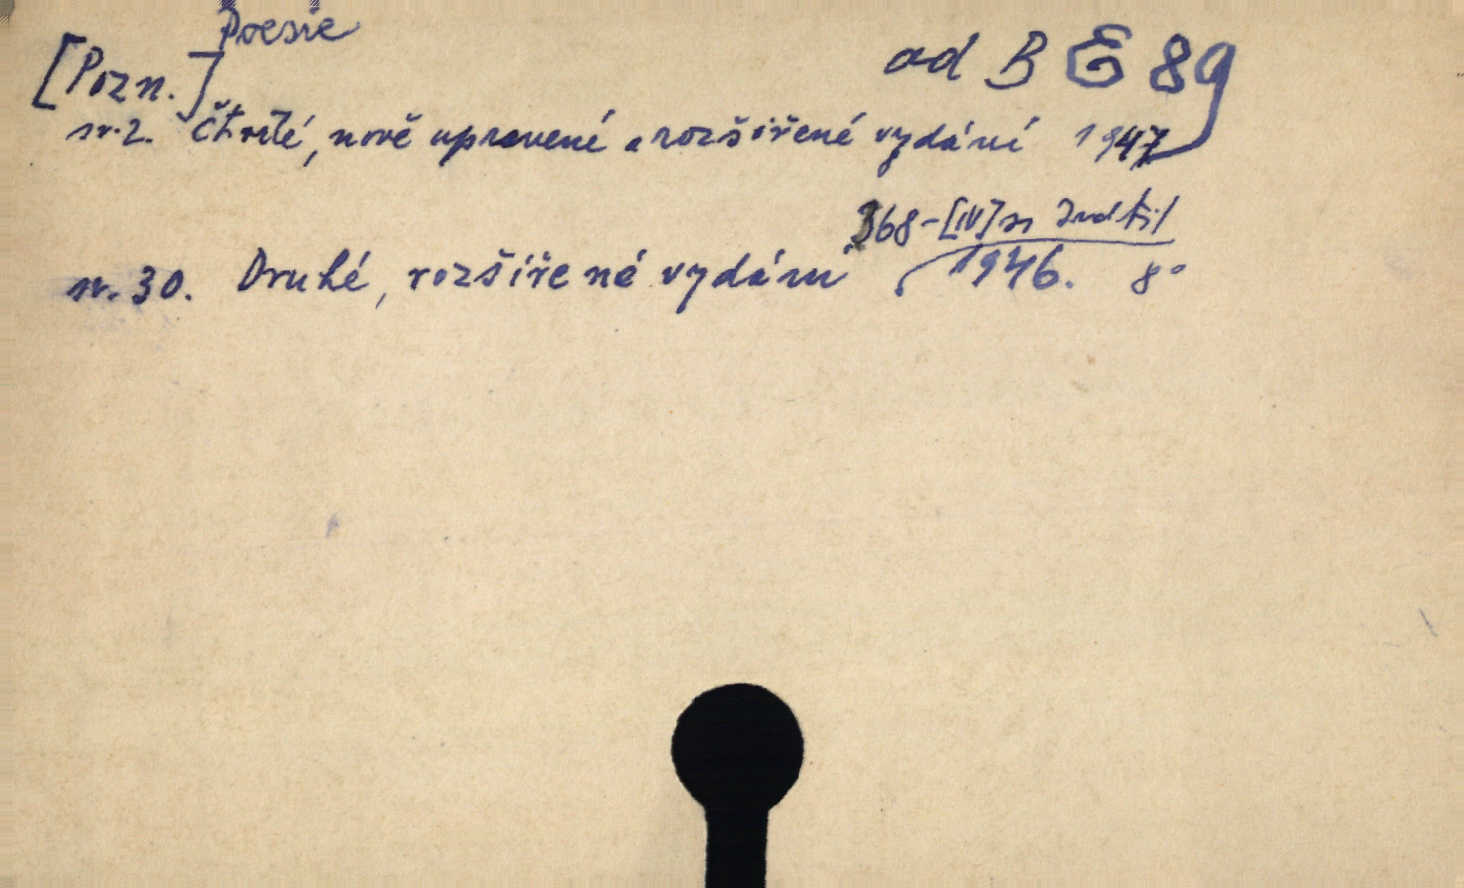 Poesie
[Pozn.] ad B E 89
sv. 2. Čtvrté, nově upravené a rozšířené vydání 1947
368-[IV] s
sv. 30. Druhé, rozšířené vydání 1946. 8°